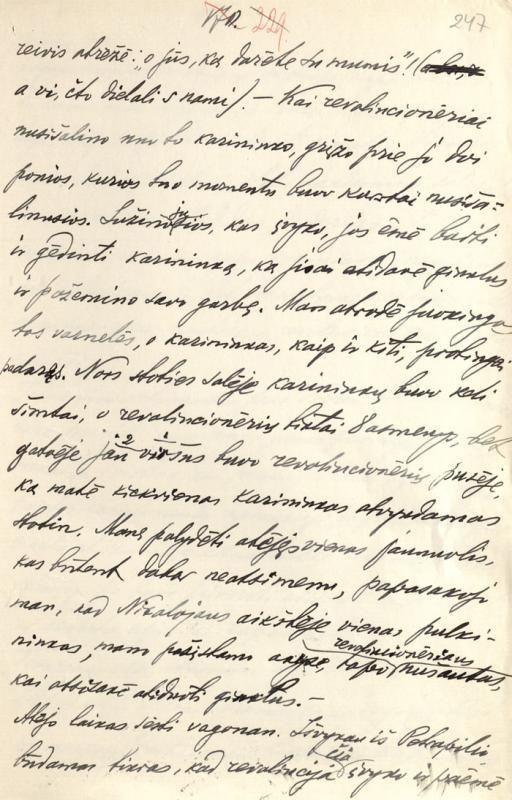 247
reivis atrėžė: "o jūs, ką darėte su mumis"! (
a vi, čto dielali s nami). – Kai revoliucionieriai
nusišalino nuo to karininko, grįžo prie jo dvi
ponios, kurios tuo momentu buvo kažkur nusiša-
linusios. Sužinojusios, kas įvyko, jos ėmė barti
ir gėdinti karininką, kad jisai atidavė ginklus
ir pažemino savo garbę. Man atrodė juokinga
tos varnelės, o karininkas, kaip ir kiti, protingai
padaręs. Nors stoties salėje karininkų buvo keli
šimtai, o revoliucionierių tiktai 8 asmenys, bet
gatvėje jau viršus buvo revoliucionierių pusėje,
ką matė kiekvienas karininkas atvykdamas
stotin. Mane palydėti atėjęs vienas jaunuolis,
kas būtent dabar neatsimenu, papasakojo
man, kad Nikalojaus aikštėje vienas pulki-
ninkas, mano pažįstamas, tapo revoliucionieriaus nušautas,
kai atsisakė atiduoti ginklus. –
Atėjo laikas sėsti vagonan. Išvykau iš Petrapilio,
būdamas tikras, kad revoliucija čia įvyko ir paėmė